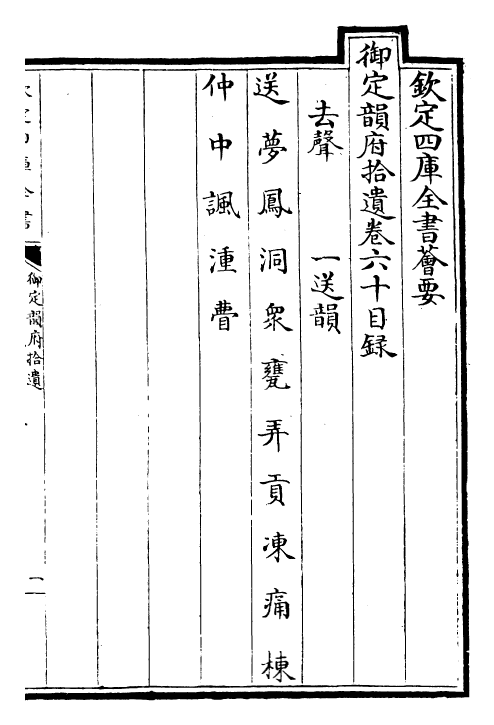 欽定四庫全書薈要
御定韻府拾遺卷六十目錄
去聲 一送韻
送夢鳳洞衆甕弄貢凍痛棟
仲中諷湩瞢
御定韻府拾遺
一